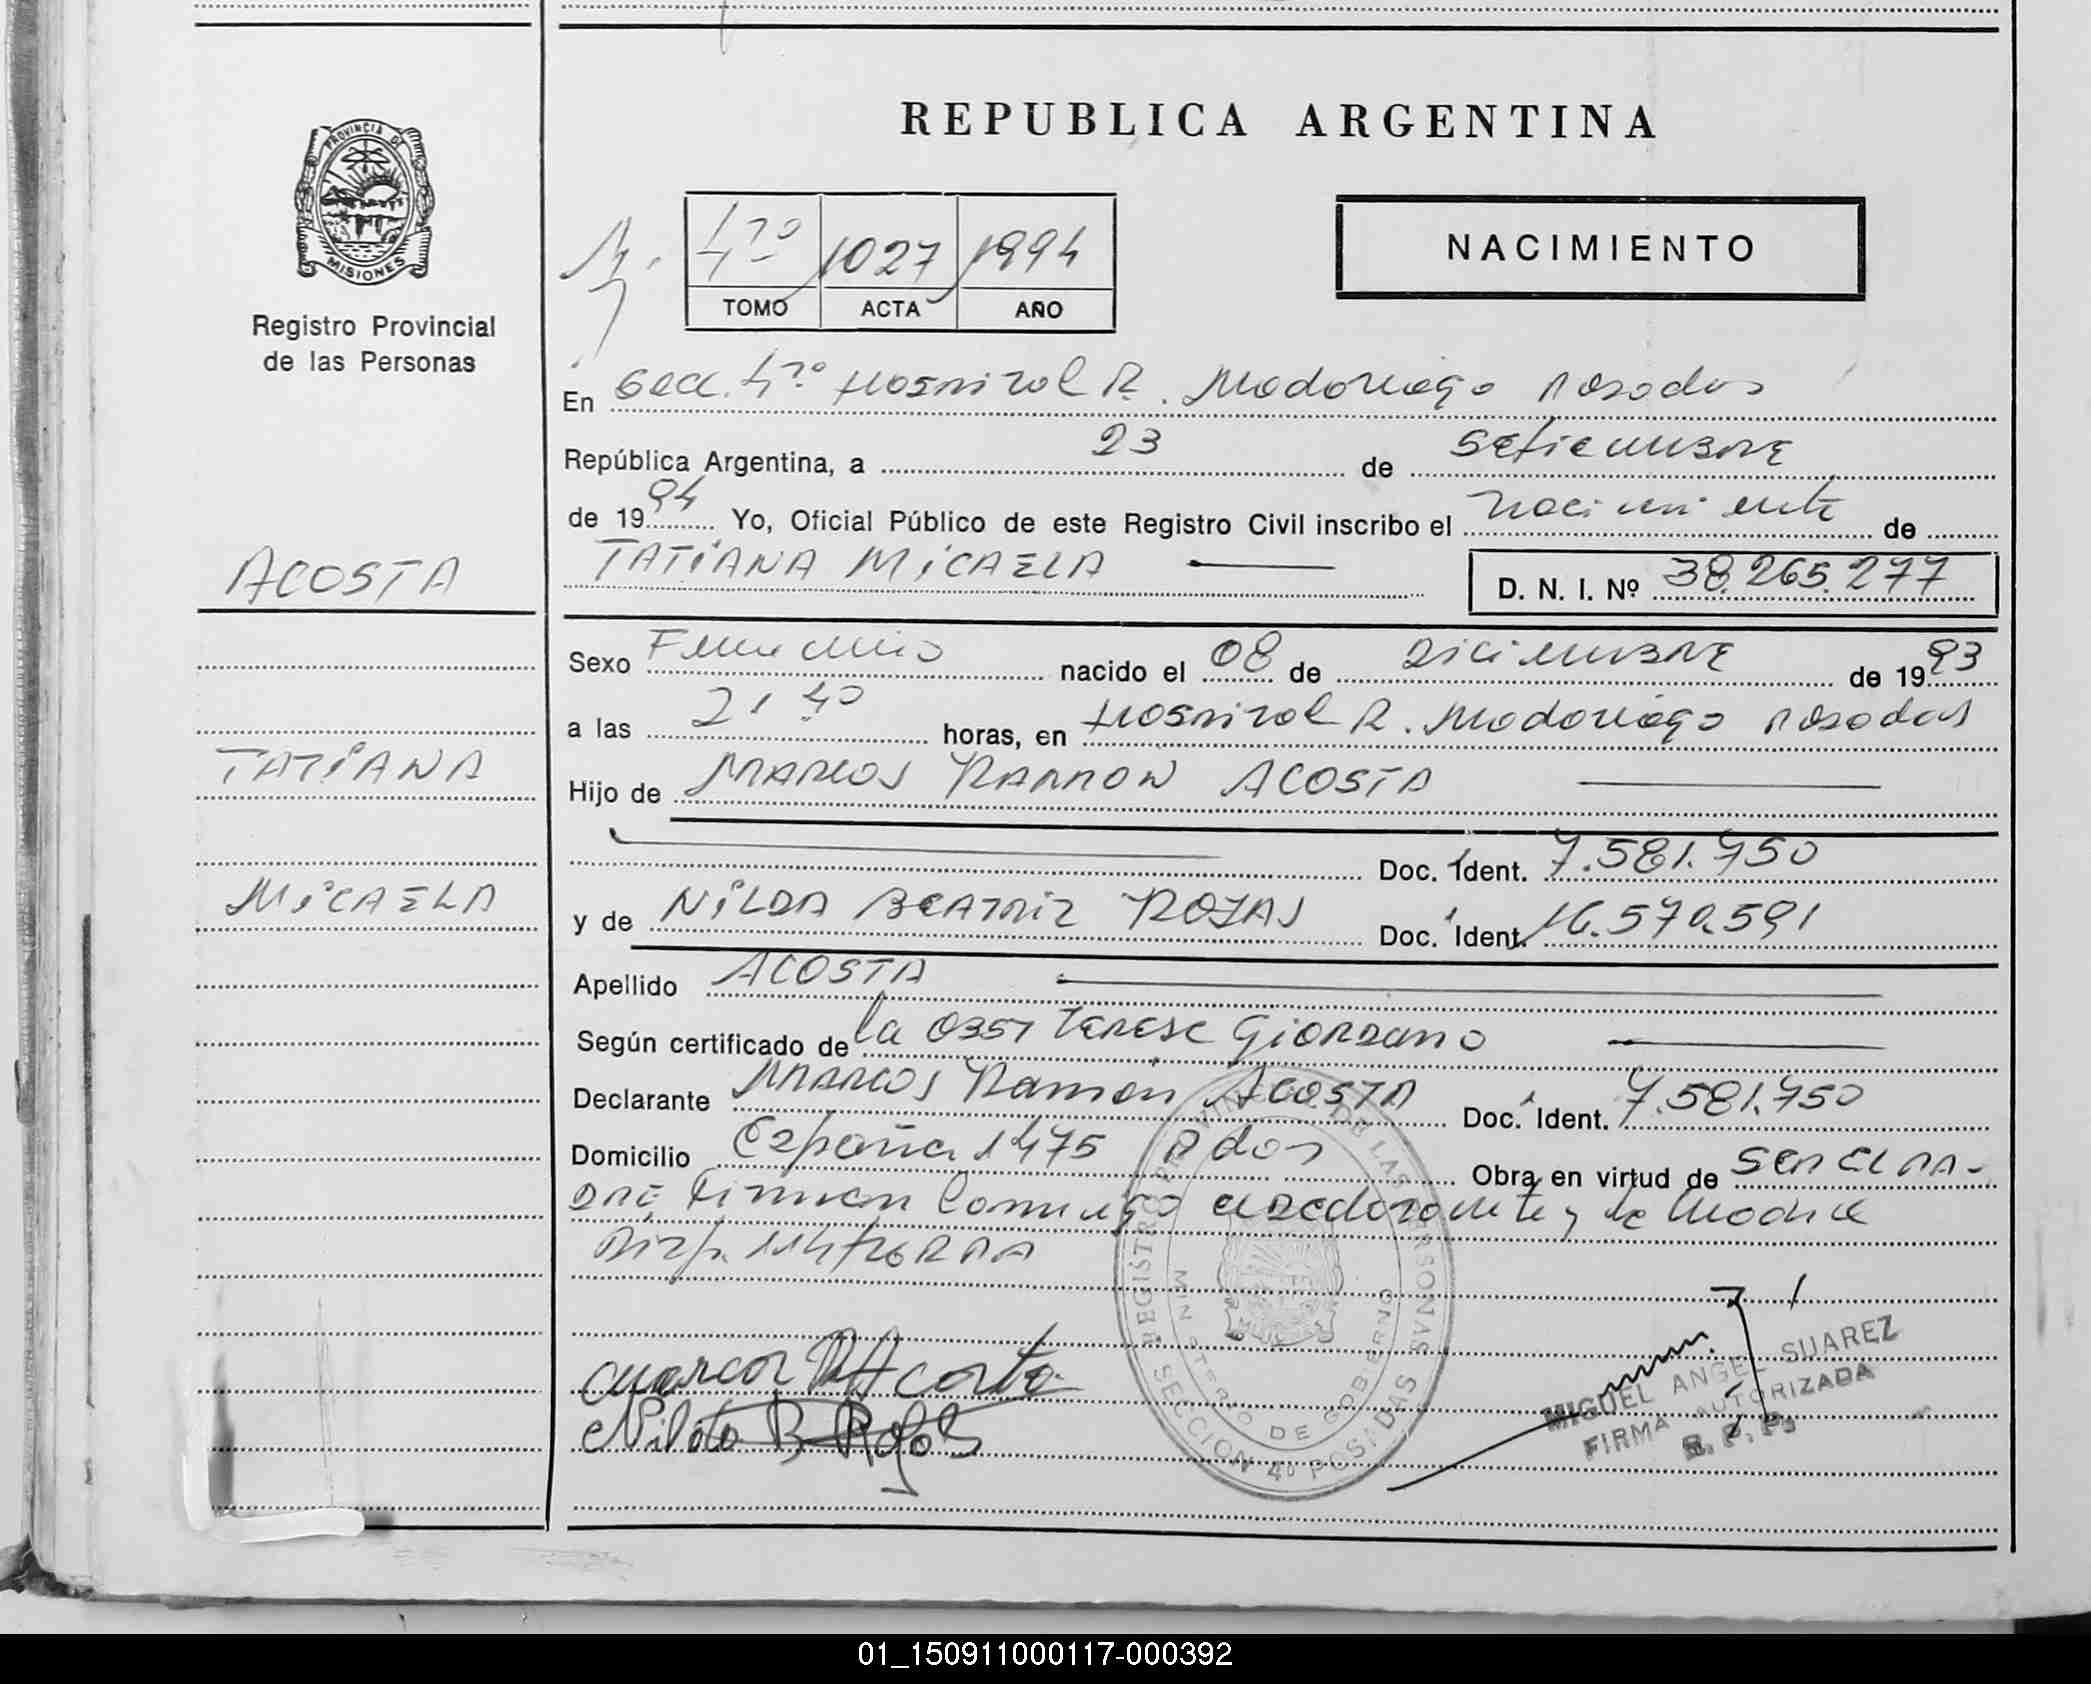 REPUBLICA ARGENTINA
PROVINCIA DE
MISIONES
Registro Provincial
de las Personas
4º 1027 1994
TOMO ACTA AÑO
NACIMIENTO
En Secc. 4º Hospital R. Madariaga Posadas
República Argentina, a 23 de Setiembre
de 1994 Yo, Oficial Público de este Registro Civil inscribo el nacimiento de
TATIANA MICAELA D. N. I. Nº 38.265.277
ACOSTA
TATIANA
MICAELA
Sexo Femenino nacido el 08 de Diciembre de 1993
a las 21 40 horas, en Hospital R. Madariaga Posadas
Hijo de MARCOS RAMON ACOSTA
Doc. Ident. 7.581.750
y de NILDA BEATRIZ ROJAS Doc. Ident. 16.570.591
Apellido ACOSTA
Según certificado de la Obst Terese Giordano
Declarante MARCOS Ramón ACOSTA Doc. Ident. 7.581.750
Domicilio España 1475 Pdas Obra en virtud de Ser el Pa-
dre, Firman Conmigo el Declarante y la Madre
Disp.
Marcos R Acosta
Nilda B Rojas
REGISTRO PROVINCIAL DE LAS PERSONAS
MINISTERIO DE GOBIERNO
SECCION 4º POSADAS
MIGUEL ANGEL SUAREZ
FIRMA AUTORIZADA
R. P. P.
01_150911000117-000392